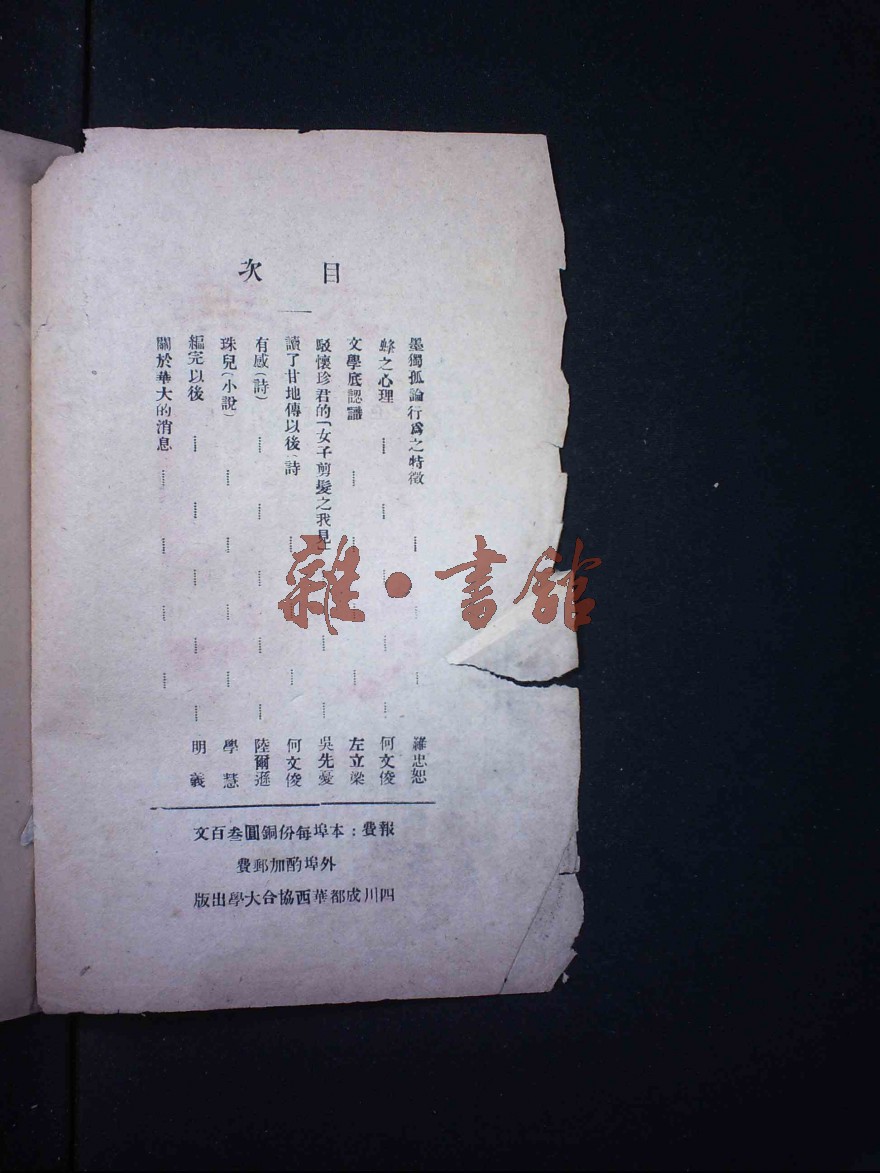 目次
墨獨孤論行爲之特徵……羅忠恕
蜂之心理……何文俊
文學底認識……左立梁
駁懷珍君的「女子剪髮之我見」……吳先憂
讀了甘地傳以後(詩……何文俊
有感(詩)……陸爾遜
珠兒(小說)……學慧
編完以後……明義
關於華大的消息……
報費:本埠每份銅圓叁百文
外埠酌加郵費
四川成都華西協合大學出版
雜·書館